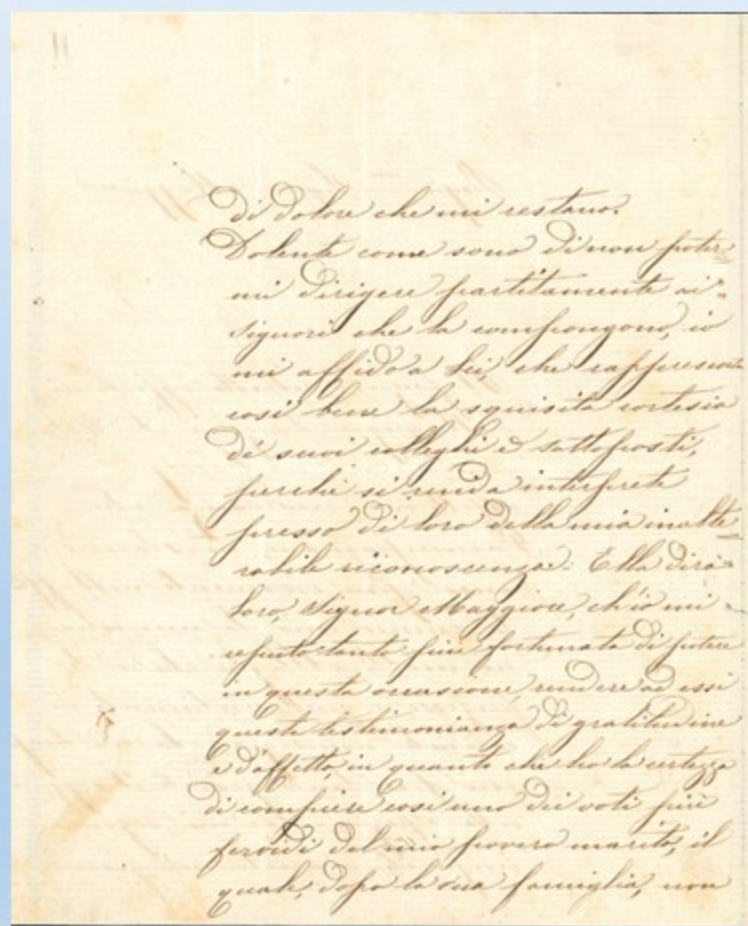 11
di dolore che mi restano.
Dolente come sono di non poter=
mi dirigere partitamente ai
signori che la compongono, io
mi affido a Lei, che rappresenta
così bene la squisita cortesia
di suoi colleghi e sottoposti,
perchè si renda interprete
presso di loro della mia inalte=
rabile riconoscenza. Ella dirà
loro, Signor Maggiore, ch'io mi
reputo tanto più fortunata di potere
in questa occasione, rendere ad essi
questa testimonianza di gratitudine
e d'affetto, in quanto che ho la certezza
di compiere così uno dei voti più
fervidi del mio povero marito, il
quale, dopo la sua famiglia, non